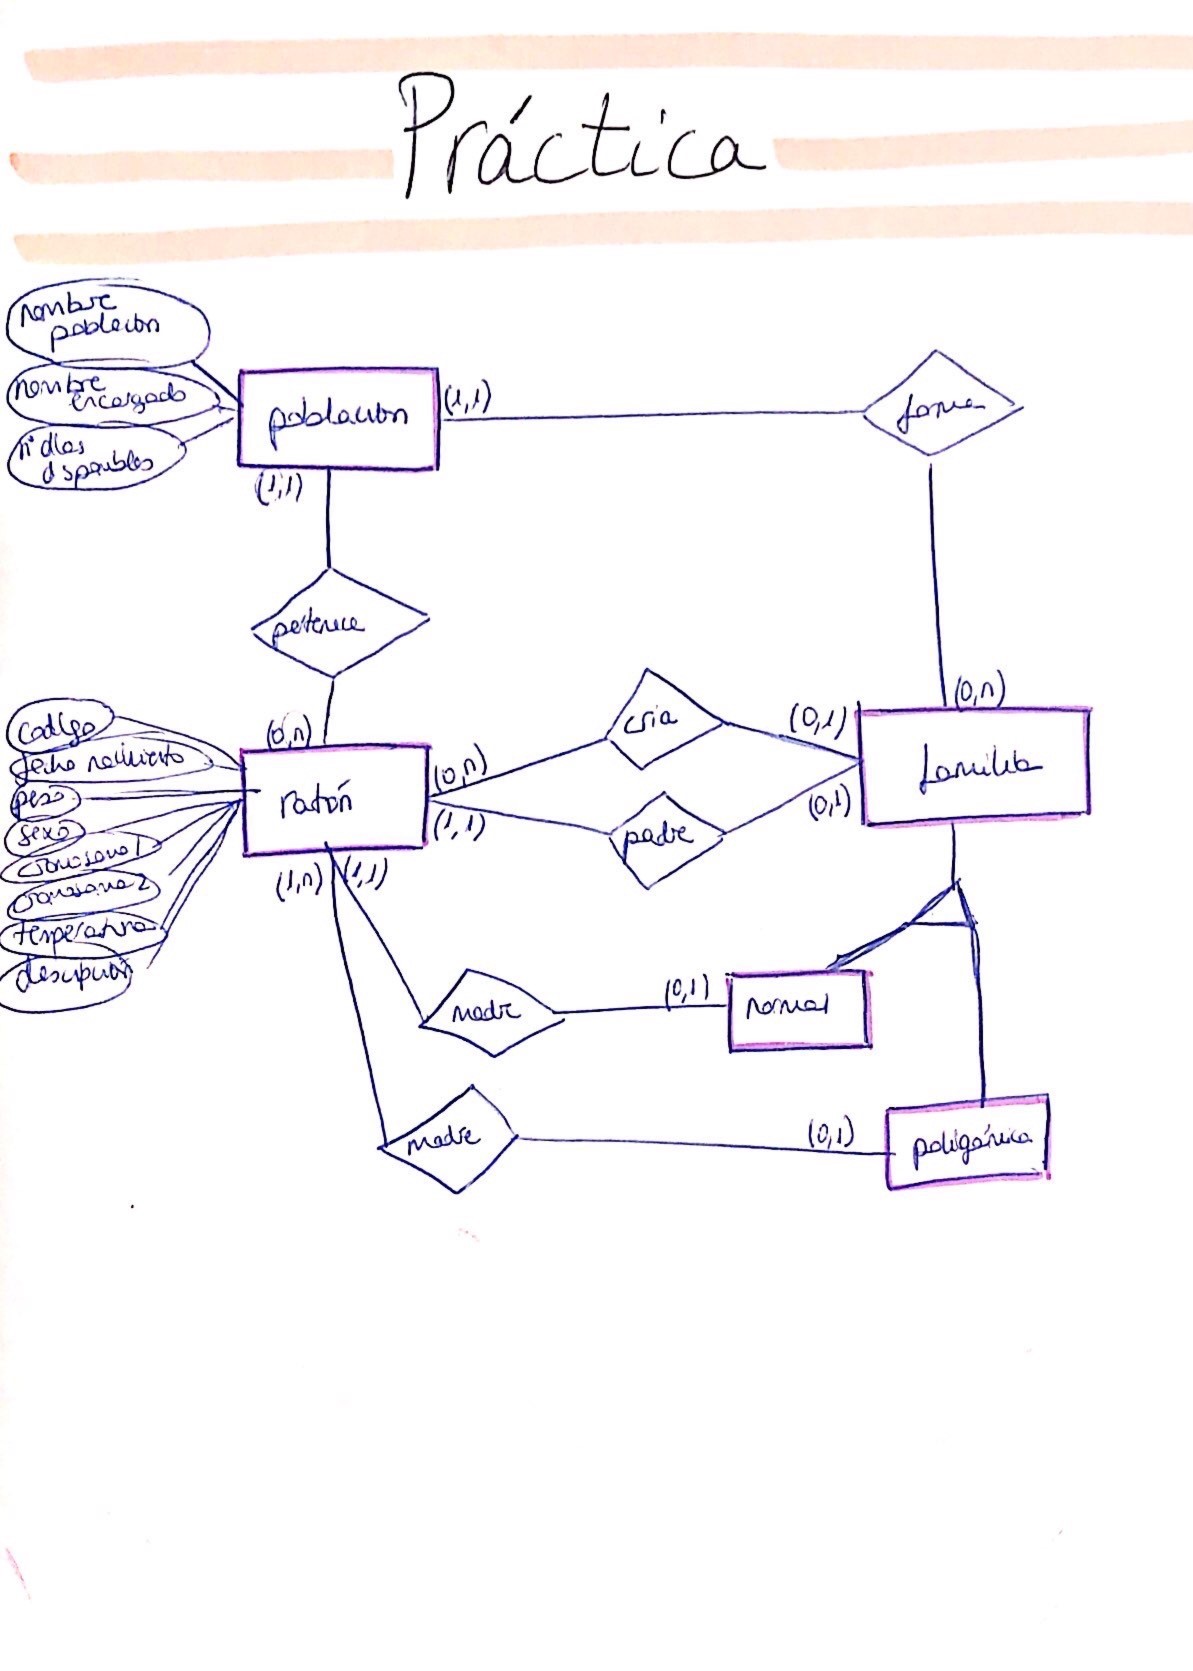 Práctica
nombre
población
nombre
encargado
nº días
disponibles
población
(1,1)
forma
(1,1)
pertenece
(0,n)
(0,n)
codigo
fecha nacimiento
peso
sexo
cromosoma 1
cromosoma 2
temperatura
descripción
ratón
(0,n)
cria
(0,1)
familia
(1,1)
padre
(0,1)
(1,n)
(1,1)
madre
(0,1)
normal
madre
(0,1)
poligámica